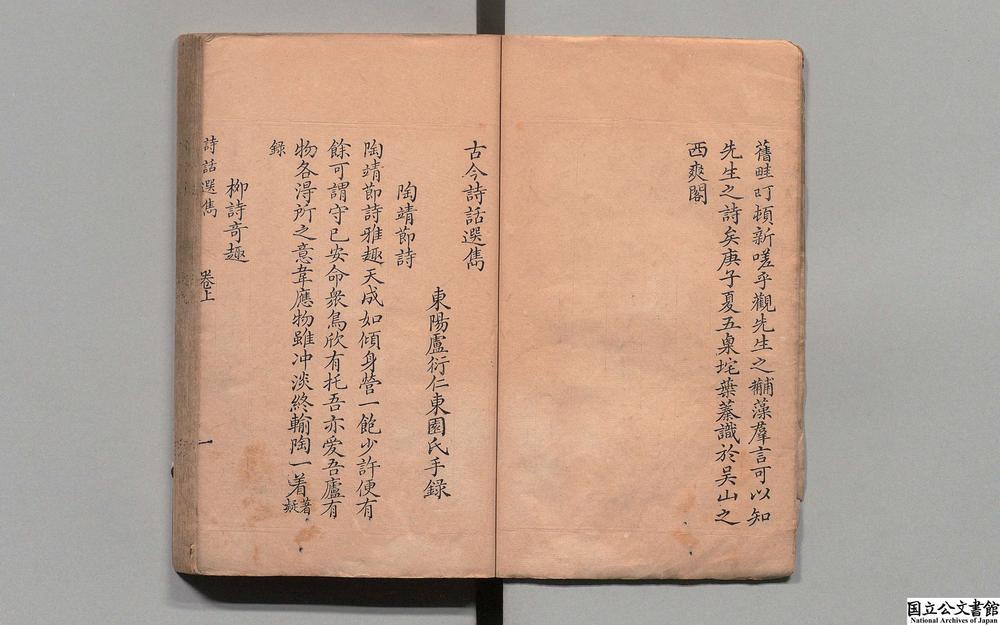 舊畦叮頓新嗟乎觀先生之黼藻羣言可以知
先生之詩矣庚子夏五㮚垞葉蓁識於吴山之
西爽閣
古今詩話選雋
東陽盧衍仁東園氏手錄
陶靖節詩
陶靖節詩雅趣天成如傾身營一飽少許便有
餘可謂守已安命衆鳥欣有托吾亦愛吾廬有
物各得所之意韋應物雖冲淡終輸陶一着
著疑
録
柳詩奇趣
詩話選雋 卷上 一
国立公文書館
National Archives of Japan